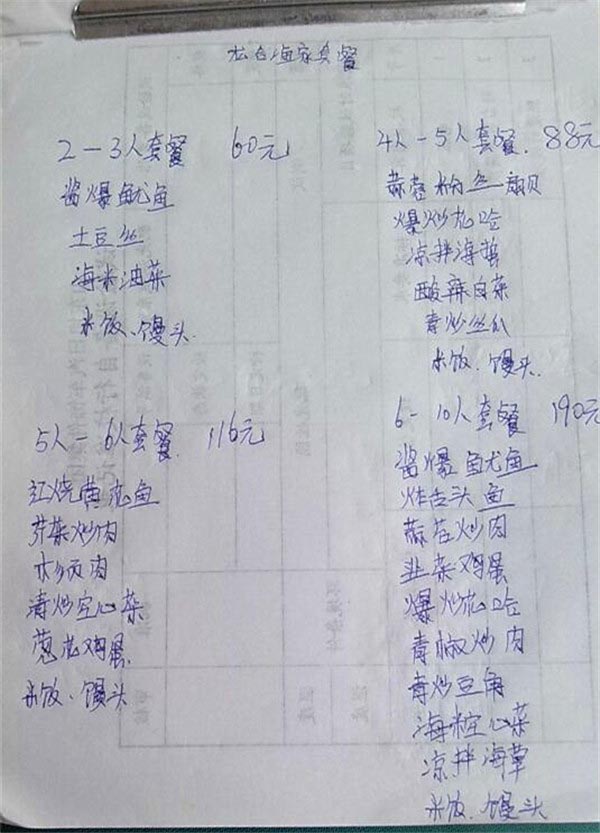 2-3人套餐 60元
酱爆鱿鱼
土豆丝
海米油菜
米饭、馒头
4人-5人套餐. 88元
蒜蓉粉丝扇贝
爆炒花哈
凉拌海蜇
酸辣白菜
青炒丝瓜
米饭、馒头.
5人-6人套餐 116元
红烧黄花鱼
芹菜炒肉
木须肉
清炒空心菜
葱花鸡蛋
米饭、馒头
6-10人套餐 190元
酱爆鱿鱼
炸舌头鱼
蒜苔炒肉
韭菜鸡蛋
爆炒花哈
青椒炒肉
青炒豆角
海米空心菜
凉拌海草
米饭、馒头